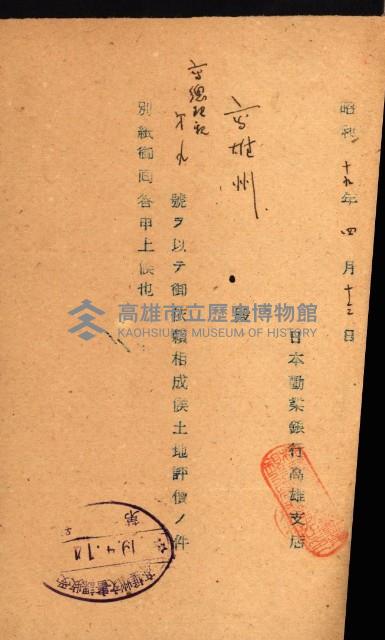 昭和十九年四月十三日
日本勸業銀行高雄支店
高雄州
殿
高總秘祕第九
號ヲ以テ御依賴相成候土地評價ノ件
別紙御回答申上候也
高雄市立歷史博物館
KAOHSIUNG MUSEUM OF HISTORY
第
19.4.1